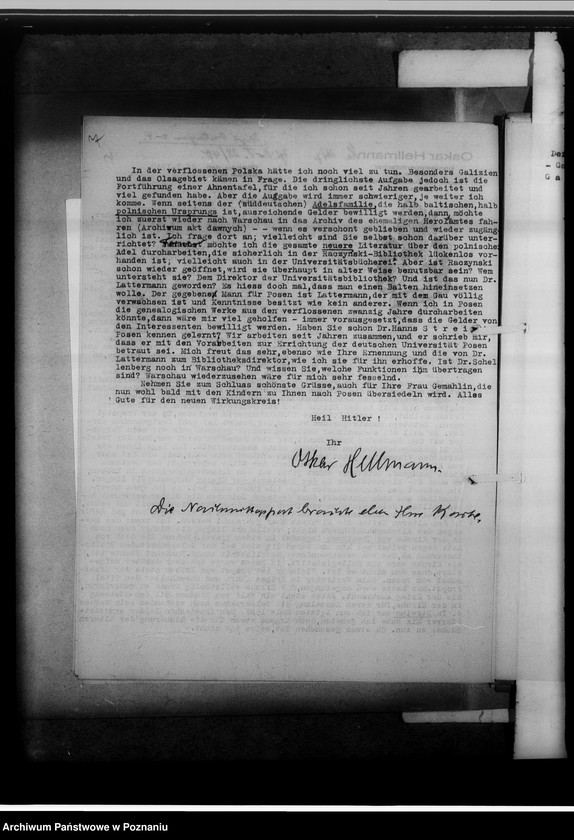 In der verflossenen Polska hätte ich noch viel zu tun. Besonders Galizien
und das Olsagebiet kämen in Frage. Die dringlichste Aufgabe jedoch ist die
Fortführung einer Ahnentafel,für die ich schon seit Jahren gearbeitet und
viel gefunden habe. Aber die Aufgabe wird immer schwieriger,je weiter ich
komme. Wenn seitens der (süddeutschen) Adelsfamilie,die halb baltischen,halb
polnischen Ursprungs ist,ausreichende Gelder bewilligt werden,dann,möchte
ich zuerst wieder nach Warschau in das Archiv des ehemaligen Heroldamtes fah-
ren (Archiwum akt dawnych) - - wenn es verschont geblieben und wieder zugäng-
lich ist. Ich frage dort an; vielleicht sind Sie selbst schon darüber unter-
richtet? möchte ich die gesamte neuere Literatur über den polnischen
Adel durcharbeiten,die sicherlich in der Raczynski-Bibliothek lückenlos vor-
handen ist; vielleicht auch in der Universitätsbücherei? Aber ist Raczynski
schon wieder geöffnet,wird sie überhaupt in alter Weise benutzbar sein? Wem
untersteht sie? Dem Direktor der Universitätsbibliothek? Und ist das nun Dr.
Lattermann geworden? Es hiess doch mal,dass man einen Balten hineinsetzen
wolle. Der gegebene Mann für Posen ist Lattermann,der mit dem Gau völlig
verwachsen ist und Kenntnisse besitzt wie kein anderer. Wenn ich in Posen
die genealogischen Werke aus den verflossenen zwanzig Jahre durcharbeiten
könnte,dann wäre mir viel geholfen - immer vorausgesetzt,dass die Gelder von
den Interessenten bewilligt werden. Haben Sie schon Dr.Hanns S t r e i t
Posen kennen gelernt? Wir arbeiten seit Jahren zusammen,und er schrieb mir,
dass er mit den Vorarbeiten zur Errichtung der deutschen Universität Posen
betraut sei. Mich freut das sehr,ebenso wie Ihre Ernennung und die von Dr.
Lattermann zum Bibliotheksdirektor,wie ich sie für ihn erhoffe. Ist Dr.Schel
lenberg noch in Warschau? Und wissen Sie,welche Funktionen ihm übertragen
sind? Warschau wiederzusehen wäre für mich sehr fesselnd.
Nehmen Sie zum Schluss schönste Grüsse,auch für Ihre Frau Gemahlin,die
nun wohl bald mit den Kindern zu Ihnen nach Posen übersiedeln wird. Alles
Gute für den neuen Wirkungskreis!
Heil Hitler !
Ihr
Oskar Hellmann.
Die
Archiwum Państwowe w Poznaniu